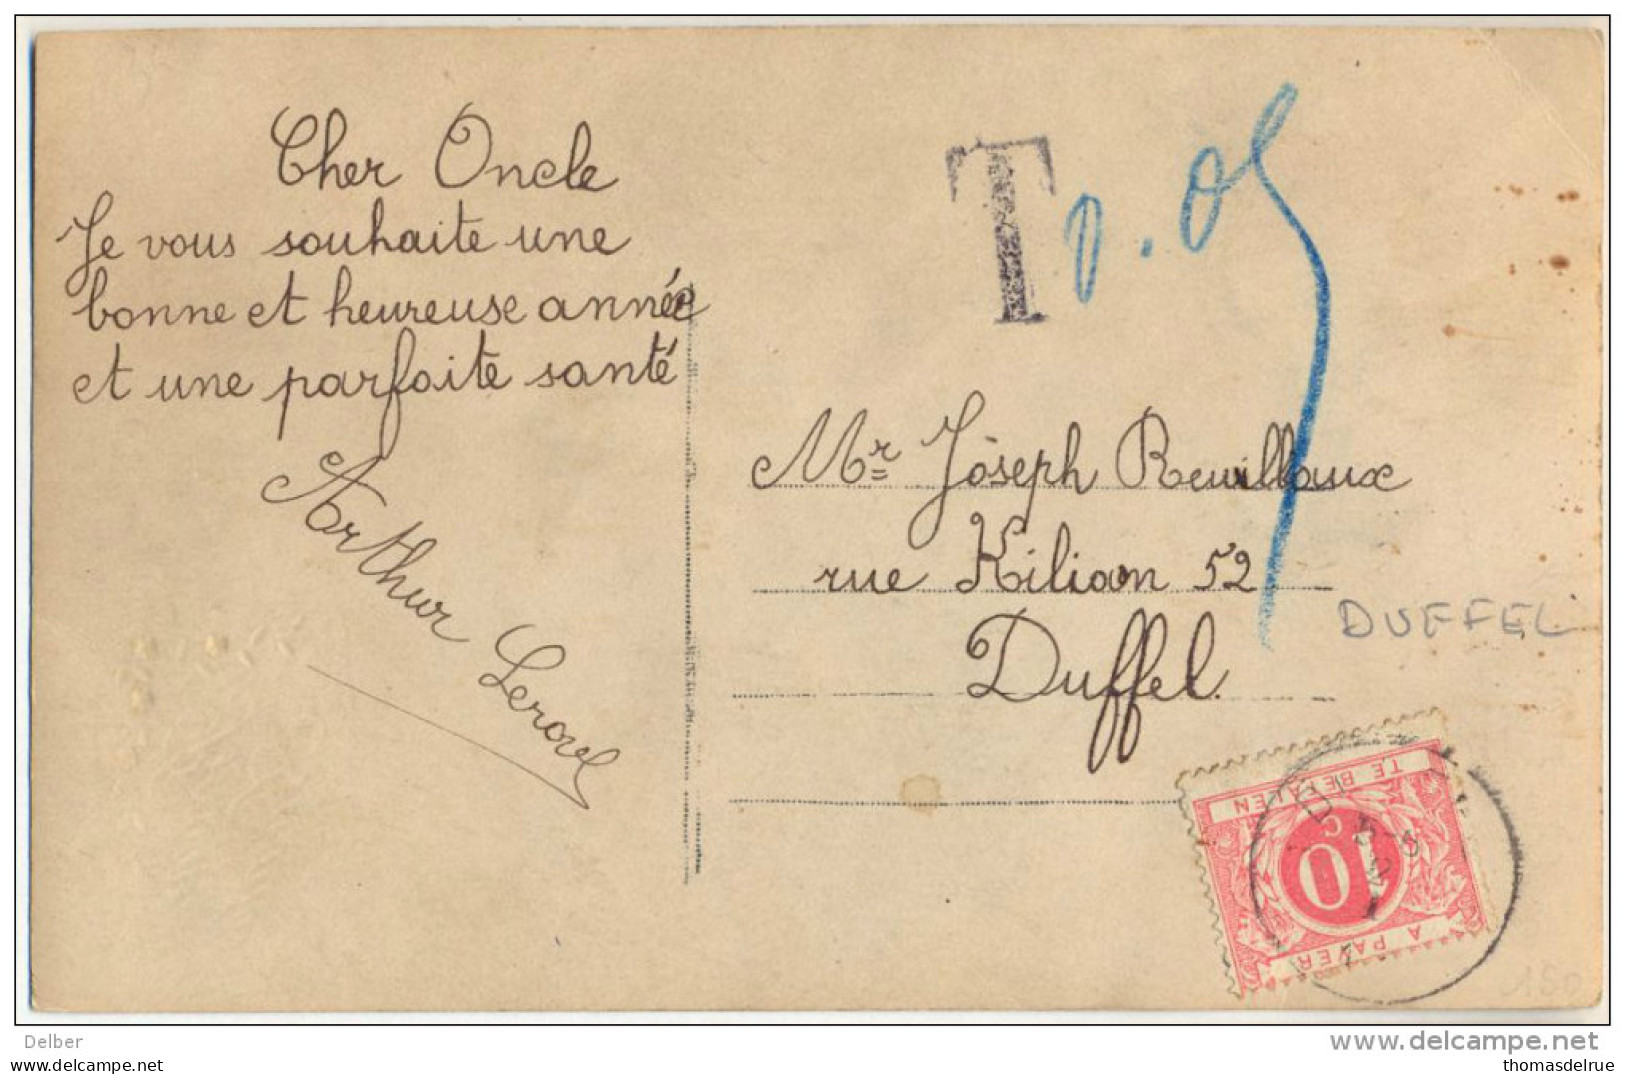 Cher Oncle
Je vous souhaite une
bonne et heureuse année
et une parfaite santé
Arthur
T 0.05
Mr Joseph
rue Kilian 52
Duffel.
DUFFEL
TE BETALEN
10
C
A PAYER
Delber
www.delcampe.net
thomasdelrue